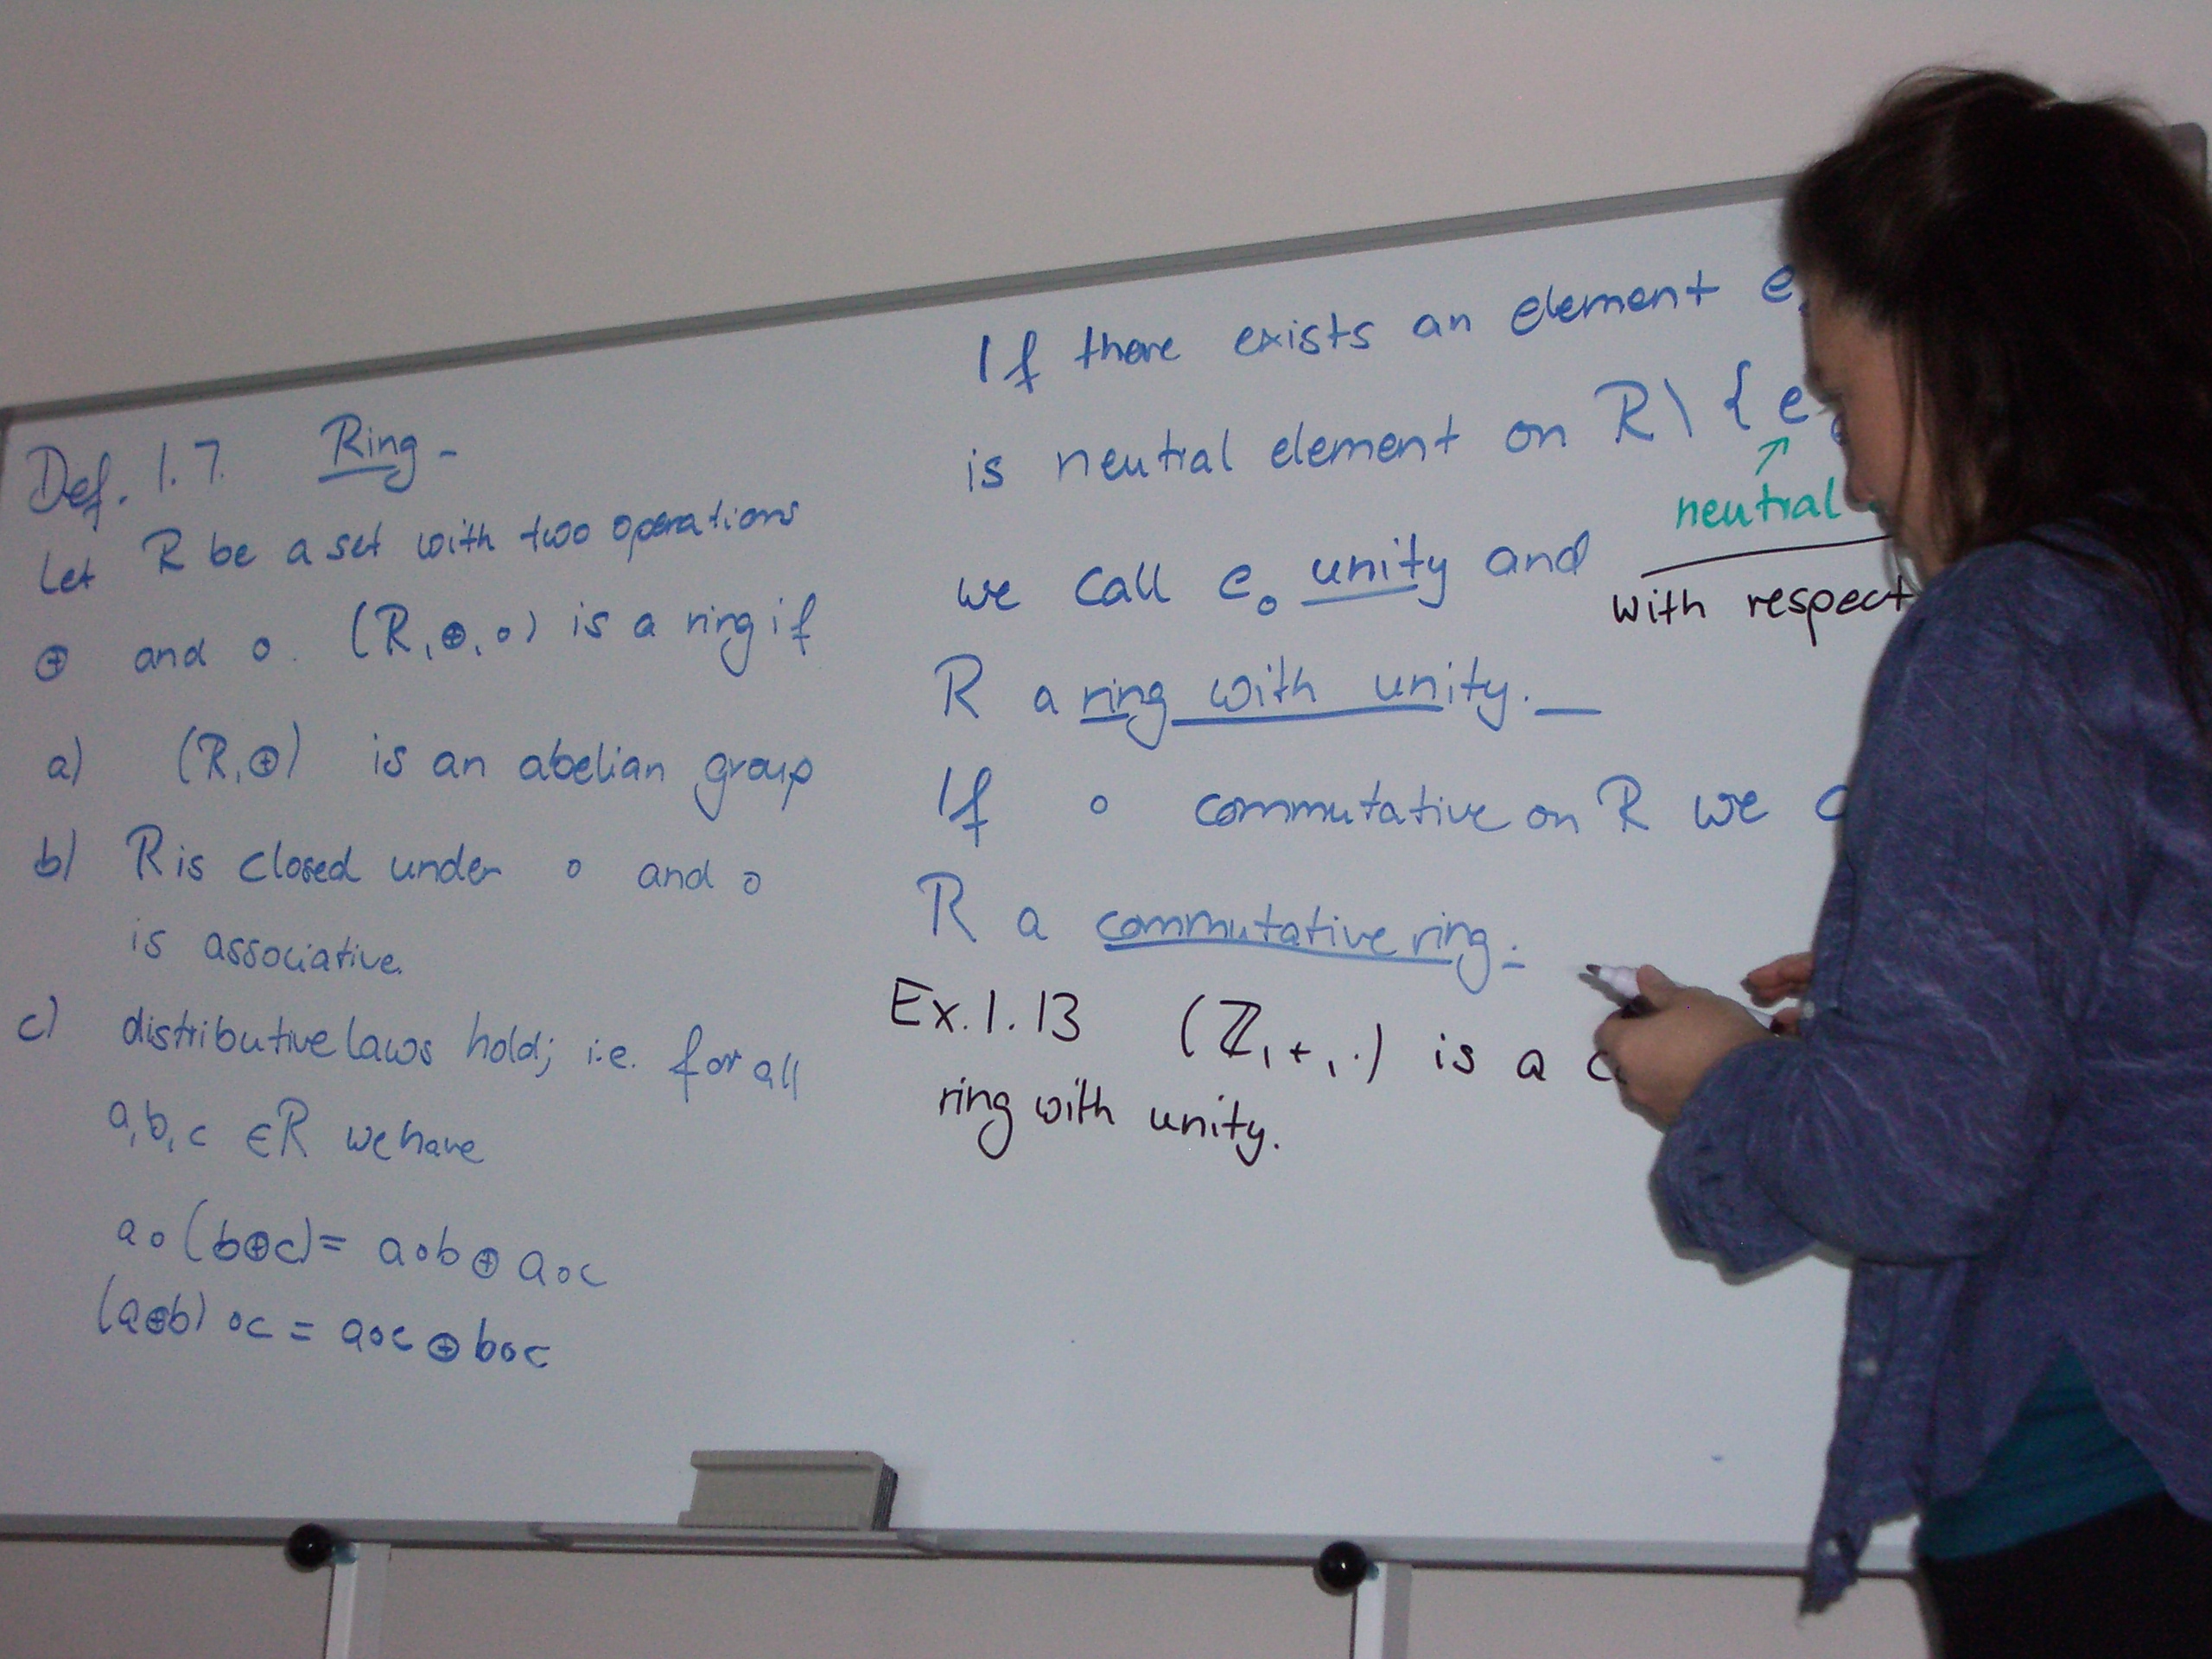 Def. 1.7. Ring -
Let R be a set with two operations
⊕ and ∘. (R,⊕,∘) is a ring if
a) (R,⊕) is an abelian group
b) R is closed under ∘ and ∘
is associative.
c) distributive laws hold; i.e. for all
a,b,c ∈ R we have
a∘(b⊕c)= a∘b⊕a∘c
(a⊕b)∘c = a∘c⊕b∘c
If there exists an element e
is neutral element on R\{e
neutral
we call e∘ unity and
with respect
R a ring with unity. —
If ∘ commutative on R we
R a commutative ring. -
Ex. 1.13 (ℤ,+,·) is a
ring with unity.